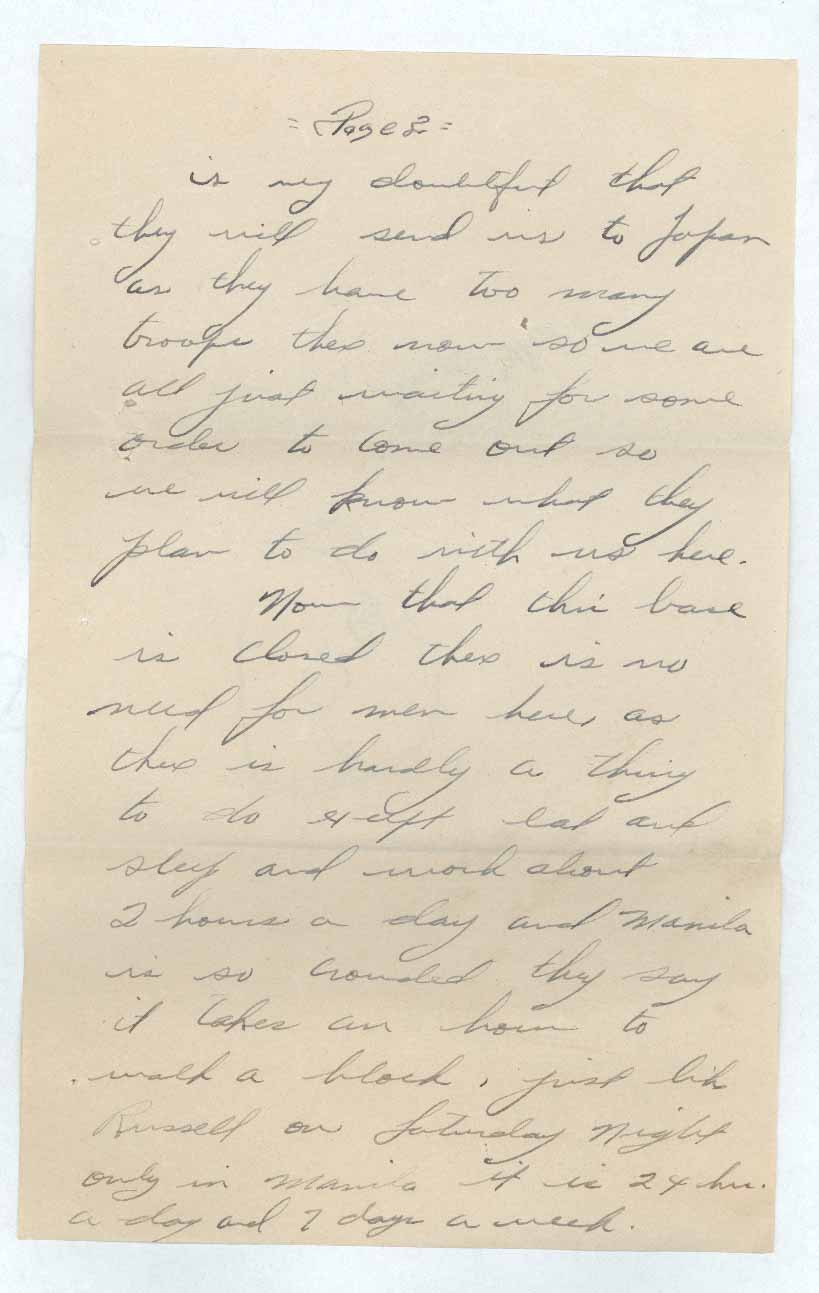 = Page 2 =
is very doubtful that
they will send us to Japan
as they have too many
troops there now so we are
all just waiting for some
order to come out so
we will know what they
plan to do with us here.
Now that this base
is closed there is no
need for men here, as
there is hardly a thing
to do except eat and
sleep and work about
2 hours a day and Manila
is so crowded they say
it takes an hour to
walk a block, just like
Russell on Saturday Night
only in Manila it is 24 hrs.
a day and 7 days a week.